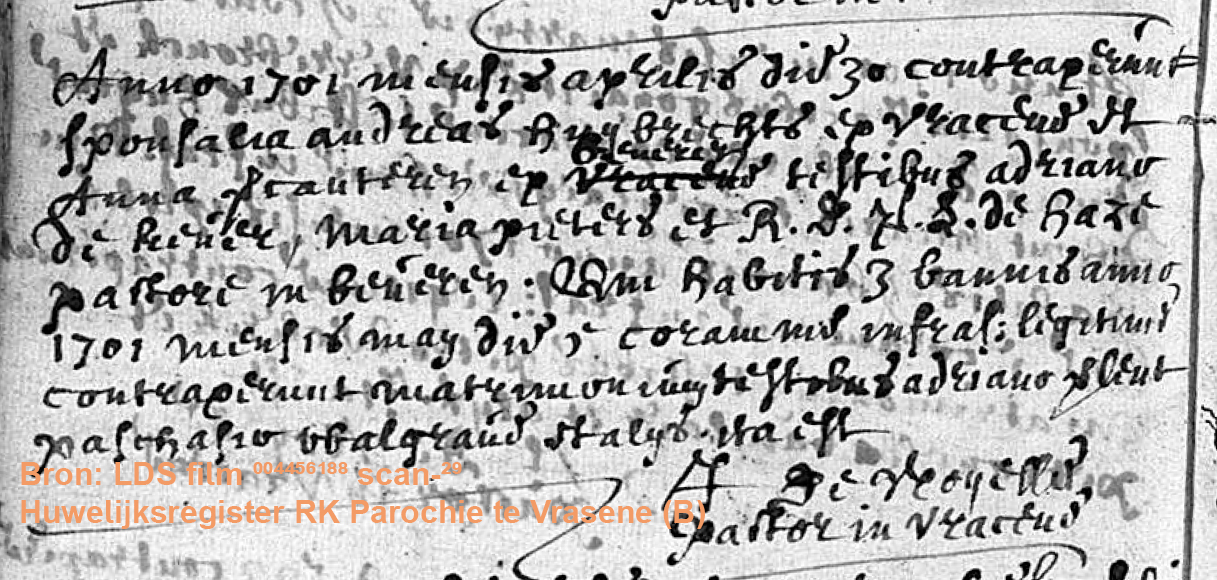 Anno 1701 mensis aprilis die 30 contraxerunt
sponsalia andreas huijbrechts ex vracene et
Beveren
Anna scauteren ex vracene testibus adriano
de keuser, Maria pieters et R. D. P. L. de haze
pastore in beveren. Qui habitis 3 bannis anno
1701 mensis may die coram me infras: legitime
contraxerunt matrimonium testibus adriano
paschasio walgrave et alys. ita est
de
pastor in vracene
Bron: LDS film 004456188 scan-29
Huwelijksregister RK Parochie te Vrasene (B)